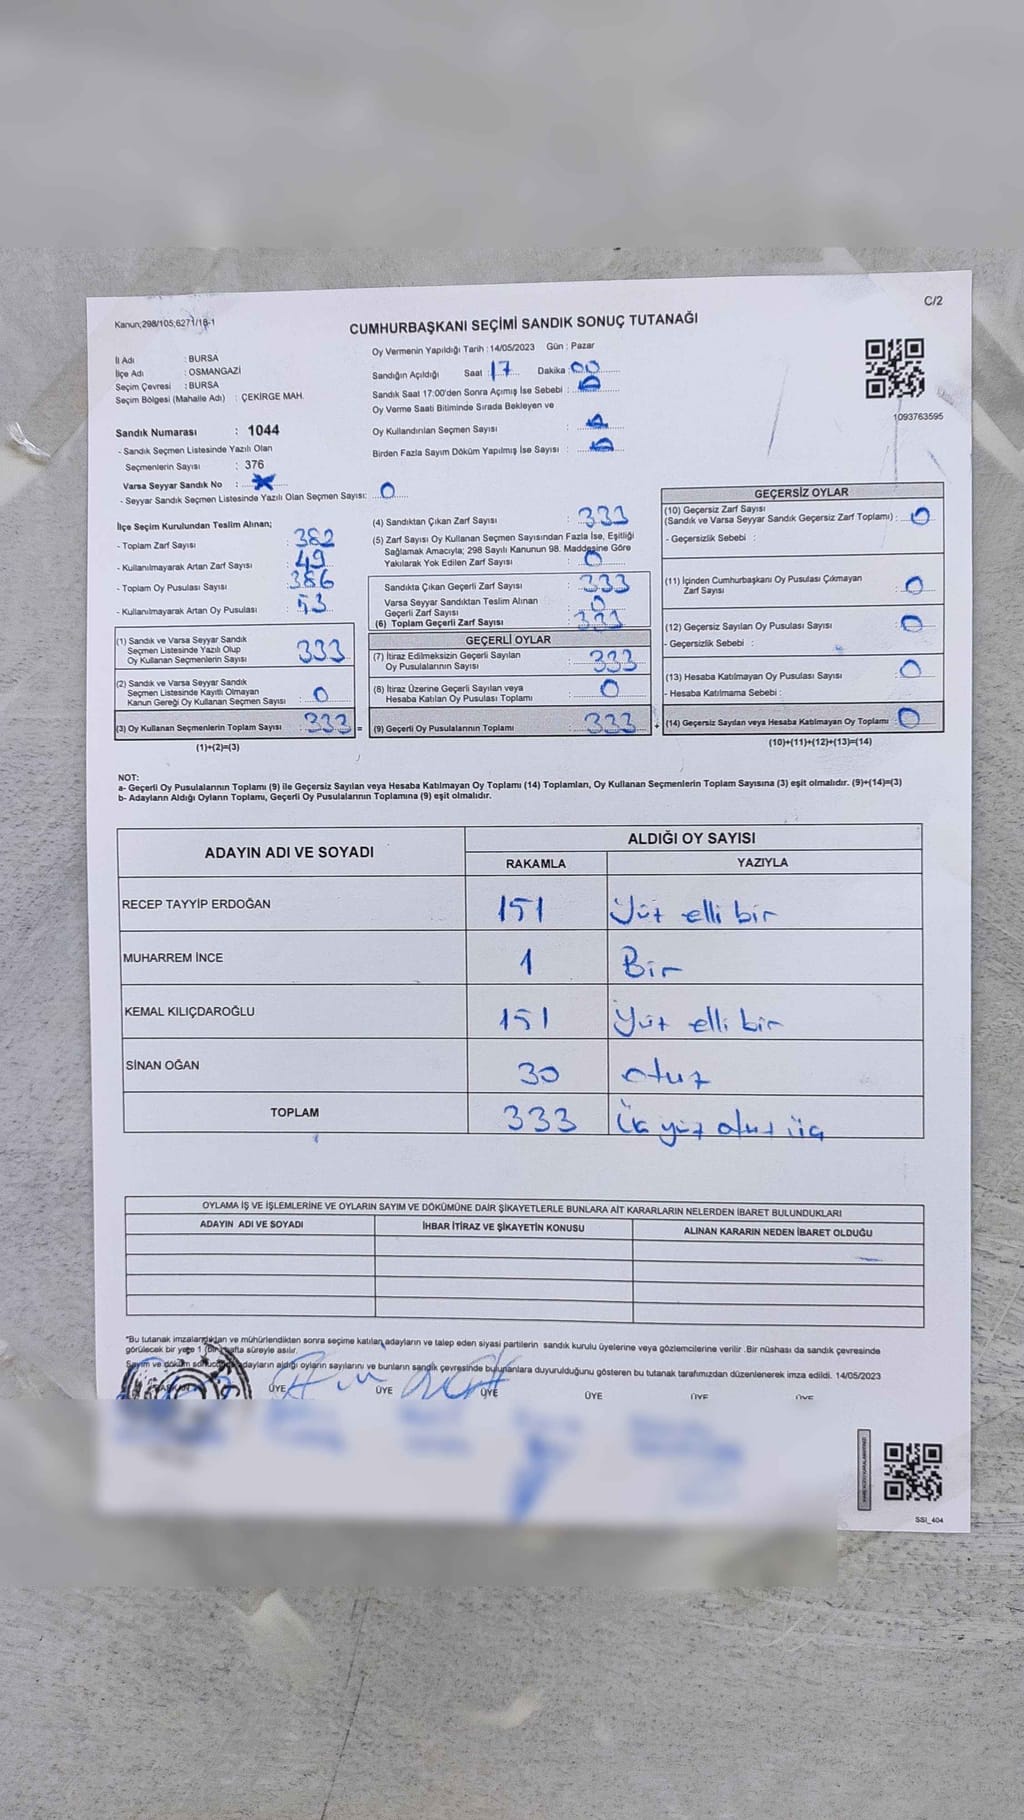 C/2
Kanun;298/105;6271/18-1
CUMHURBAŞKANI SEÇİMİ SANDIK SONUÇ TUTANAĞI
İl Adı : BURSA
İlçe Adı : OSMANGAZİ
Seçim Çevresi : BURSA
Seçim Bölgesi (Mahalle Adı) : ÇEKİRGE MAH.
Oy Vermenin Yapıldığı Tarih : 14/05/2023 Gün : Pazar
Sandığın Açıldığı Saat : 17 Dakika : 00
Sandık Saat 17:00'den Sonra Açımış İse Sebebi :
Oy Verme Saati Bitiminde Sırada Bekleyen ve
Oy Kullandırılan Seçmen Sayısı :
Birden Fazla Sayım Döküm Yapılmış İse Sayısı :
1093763595
Sandık Numarası : 1044
- Sandık Seçmen Listesinde Yazılı Olan
Seçmenlerin Sayısı : 376
Varsa Seyyar Sandık No :
- Seyyar Sandık Seçmen Listesinde Yazılı Olan Seçmen Sayısı: 0
İlçe Seçim Kurulundan Teslim Alınan;
- Toplam Zarf Sayısı : 382
- Kullanılmayarak Artan Zarf Sayısı : 49
- Toplam Oy Pusulası Sayısı : 386
- Kullanılmayarak Artan Oy Pusulası : 53
(1) Sandık ve Varsa Seyyar Sandık
Seçmen Listesinde Yazılı Olup
Oy Kullanan Seçmenlerin Sayısı : 333
(2) Sandık ve Varsa Seyyar Sandık
Seçmen Listesinde Kayıtlı Olmayan
Kanun Gereği Oy Kullanan Seçmen Sayısı : 0
(3) Oy Kullanan Seçmenlerin Toplam Sayısı : 333 =
(1)+(2)=(3)
(4) Sandıktan Çıkan Zarf Sayısı : 333
(5) Zarf Sayısı Oy Kullanan Seçmen Sayısından Fazla İse, Eşitliği
Sağlamak Amacıyla; 298 Sayılı Kanunun 98. Maddesine Göre
Yakılarak Yok Edilen Zarf Sayısı : 0
Sandıkta Çıkan Geçerli Zarf Sayısı : 333
Varsa Seyyar Sandıktan Teslim Alınan
Geçerli Zarf Sayısı : 0
(6) Toplam Geçerli Zarf Sayısı : 333
GEÇERLİ OYLAR
(7) İtiraz Edilmeksizin Geçerli Sayılan
Oy Pusulalarının Sayısı : 333
(8) İtiraz Üzerine Geçerli Sayılan veya
Hesaba Katılan Oy Pusulası Toplamı : 0
(9) Geçerli Oy Pusulalarının Toplamı : 333 +
GEÇERSİZ OYLAR
(10) Geçersiz Zarf Sayısı
(Sandık ve Varsa Seyyar Sandık Geçersiz Zarf Toplamı) : 0
- Geçersizlik Sebebi :
(11) İçinden Cumhurbaşkanı Oy Pusulası Çıkmayan
Zarf Sayısı : 0
(12) Geçersiz Sayılan Oy Pusulası Sayısı : 0
- Geçersizlik Sebebi :
(13) Hesaba Katılmayan Oy Pusulası Sayısı : 0
- Hesaba Katılmama Sebebi :
(14) Geçersiz Sayılan veya Hesaba Katılmayan Oy Toplamı : 0
(10)+(11)+(12)+(13)=(14)
NOT:
a- Geçerli Oy Pusulalarının Toplamı (9) ile Geçersiz Sayılan veya Hesaba Katılmayan Oy Toplamı (14) Toplamları, Oy Kullanan Seçmenlerin Toplam Sayısına (3) eşit olmalıdır. (9)+(14)=(3)
b- Adayların Aldığı Oyların Toplamı, Geçerli Oy Pusulalarının Toplamına (9) eşit olmalıdır.
ADAYIN ADI VE SOYADI
ALDIĞI OY SAYISI
RAKAMLA YAZIYLA
RECEP TAYYİP ERDOĞAN 151 Yüz elli bir
MUHARREM İNCE 1 Bir
KEMAL KILIÇDAROĞLU 151 Yüz elli bir
SİNAN OĞAN 30 otuz
TOPLAM 333 Üç yüz otuz üç
OYLAMA İŞ VE İŞLEMLERİNE VE OYLARIN SAYIM VE DÖKÜMÜNE DAİR ŞİKAYETLERLE BUNLARA AİT KARARLARIN NELERDEN İBARET BULUNDUKLARI
ADAYIN ADI VE SOYADI İHBAR İTİRAZ VE ŞİKAYETİN KONUSU ALINAN KARARIN NEDEN İBARET OLDUĞU
*Bu tutanak imzalandıktan ve mühürlendikten sonra seçime katılan adayların ve talep eden siyasi partilerin sandık kurulu üyelerine veya gözlemcilerine verilir .Bir nüshası da sandık çevresinde
görülecek bir yere 1 (bir) hafta süreyle asılır.
Sayım ve döküm sonucunda adayların aldığı oyların sayılarını ve bunların sandık çevresinde bulunanlara duyurulduğunu gösteren bu tutanak tarafımızdan düzenlenerek imza edildi. 14/05/2023
BAŞKAN ÜYE ÜYE ÜYE ÜYE ÜYE ÜYE
SSI_404